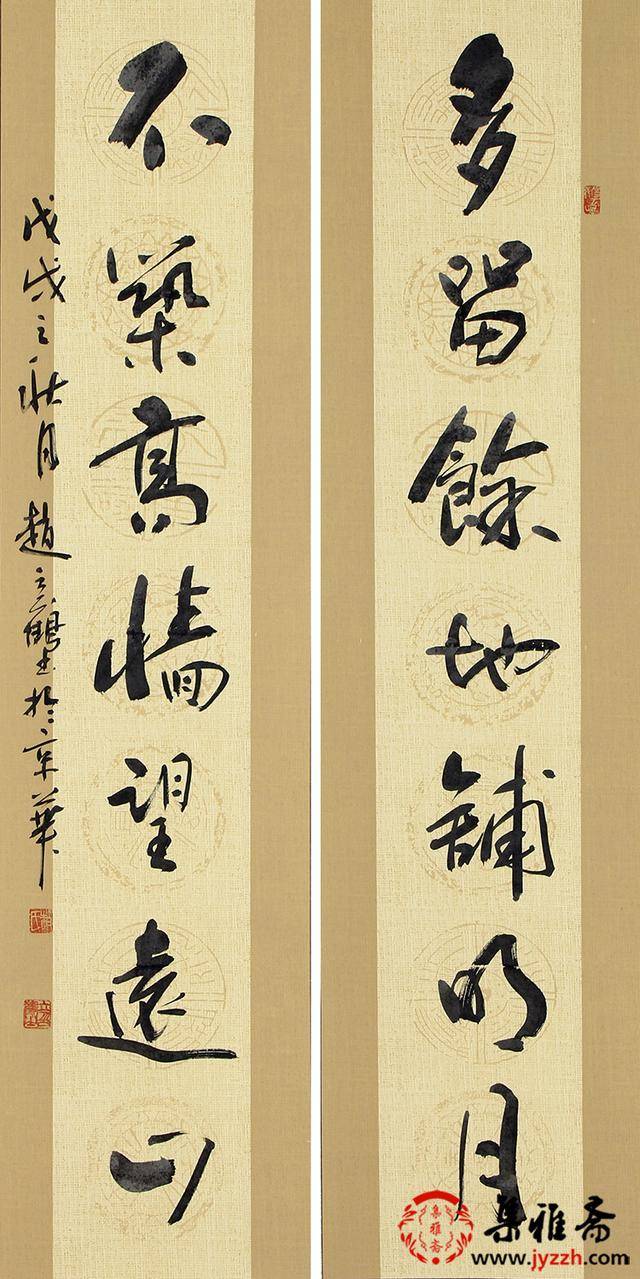 多留餘地舖明月
不築高牆望遠山
戊戌之秋月趙鶴书於京華
集雅斋
www.jyzzh.com